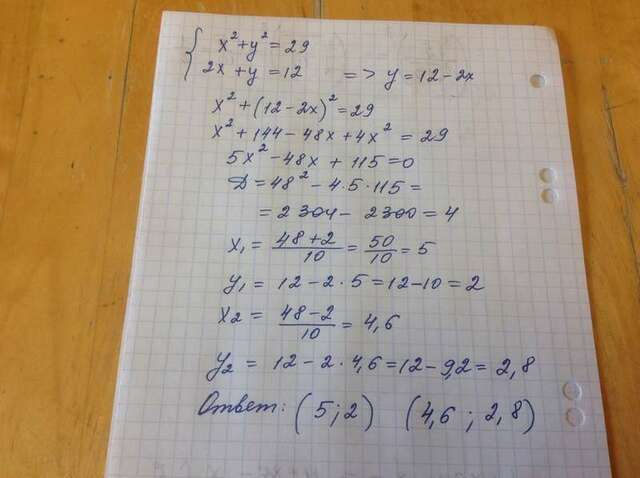 { x² + y² = 29
2x + y = 12 => y = 12 - 2x
x² + (12 - 2x)² = 29
x² + 144 - 48x + 4x² = 29
5x² - 48x + 115 = 0
Д = 48² - 4·5·115 =
= 2304 - 2300 = 4
x₁ = (48+2)/10 = 50/10 = 5
y₁ = 12 - 2·5 = 12 - 10 = 2
x₂ = (48-2)/10 = 4,6
y₂ = 12 - 2·4,6 = 12 - 9,2 = 2,8
Ответ: (5; 2) (4,6; 2,8)